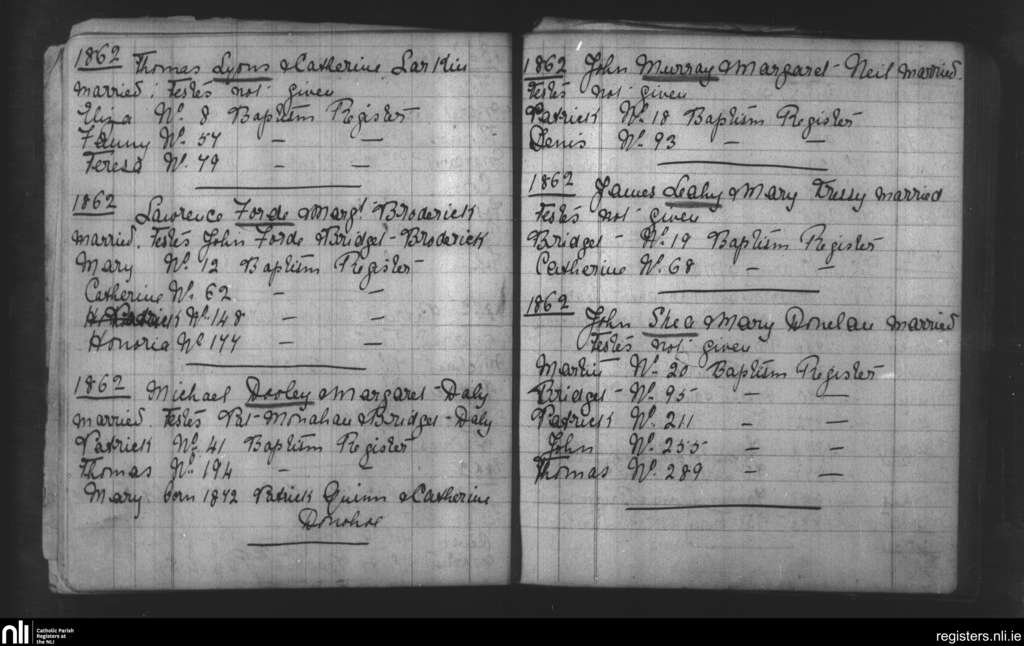 1862 Thomas Lyons & Catherine Larkin
married; Testes not given
Eliza No. 8 Baptism Register
Fanny No. 57 — —
Teresa No. 79 — —
1862 Lawrence Forde & Margt Broderick
married. Testes John Forde & Bridget Broderick
Mary No. 12 Baptism Register
Catherine No. 62 — —
Patrick No. 148 — —
Honoria No 177 — —
1862 Michael Dooley & Margaret Daly
married. Testes Pat Monahan & Bridget Daly
Patrick No. 41 Baptism Register
Thomas No. 194 —
Mary born 1872 Patrick Quinn & Catherine
Donohoe
1862 John Murray & Margaret Neil married.
Testes not given
Patrick No. 18 Baptism Register
Denis No. 93 — —
1862 James Leahy & Mary Tressy married
Testes not given
Bridget No. 19 Baptism Register
Catherine No. 68 — —
1862
John Shea & Mary Donelan married
Testes not given
Martin No. 20 Baptism Register
Bridget No. 95 — —
Patrick No. 211 — —
John No. 255 — —
Thomas No. 289 — —
nli Catholic Parish
Registers at
the NLI
registers.nli.ie